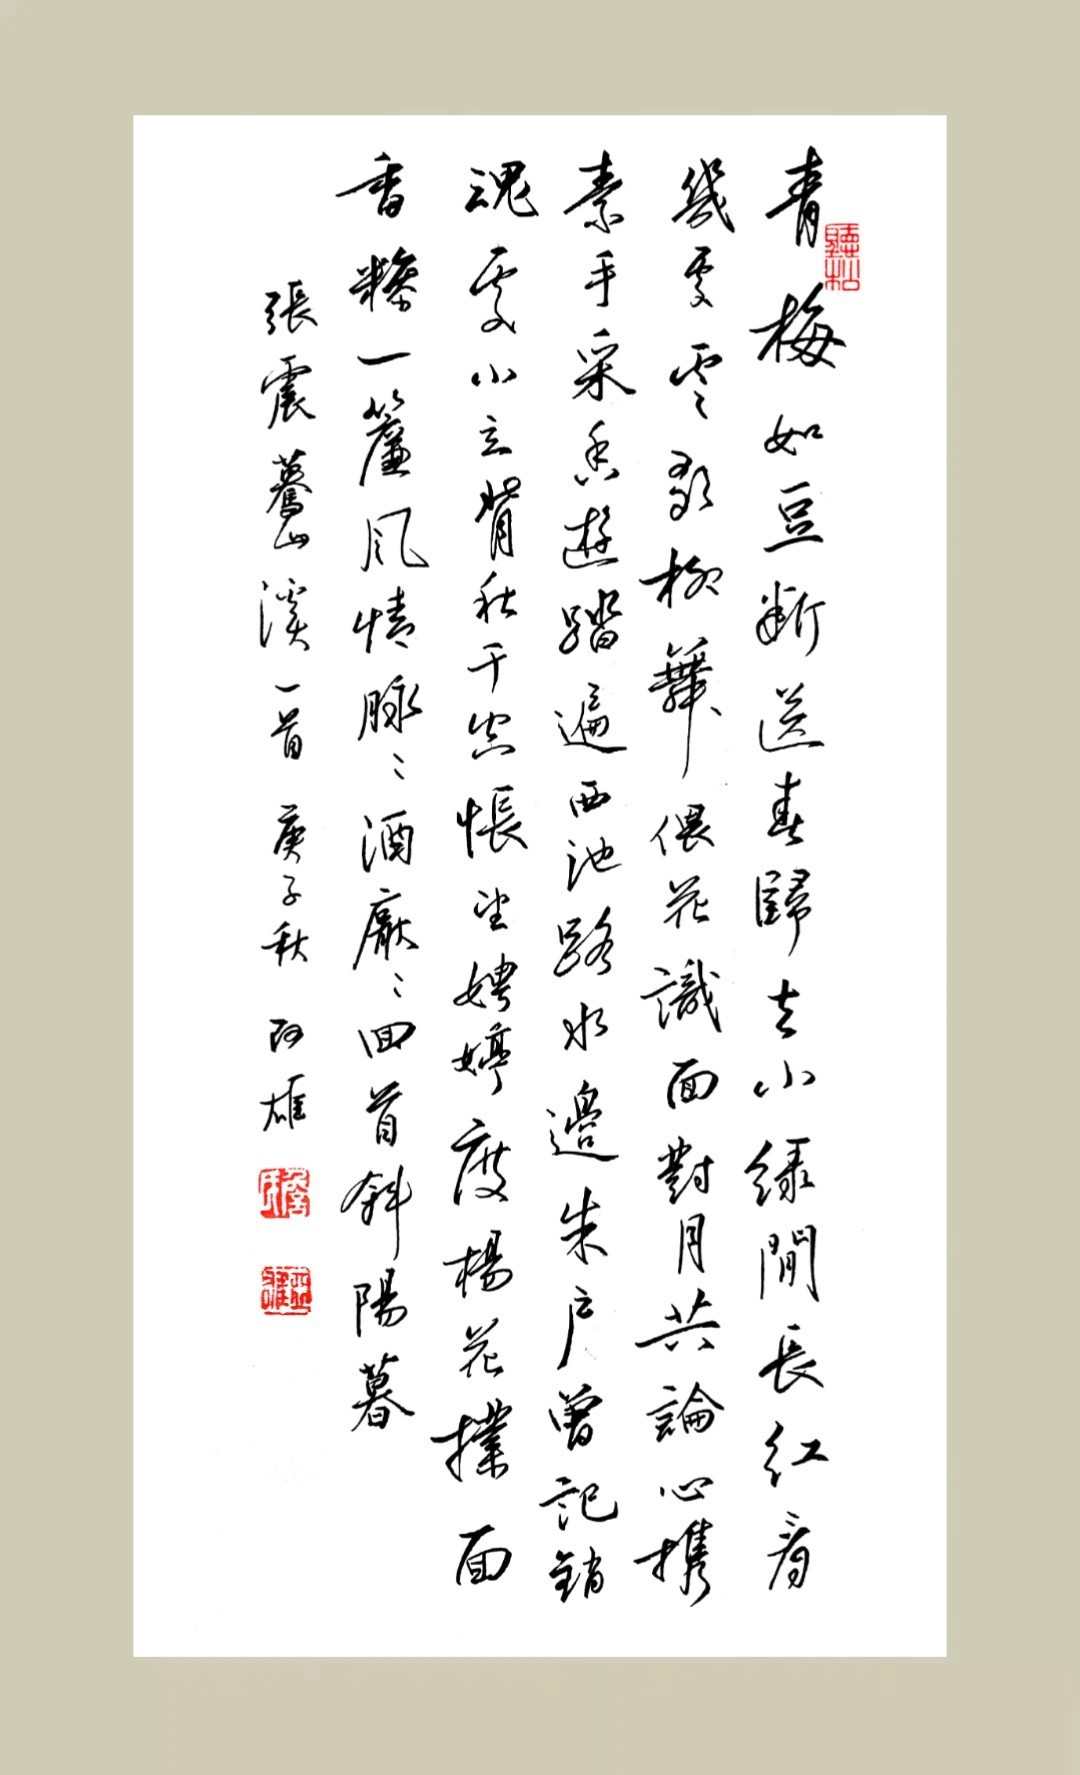 青梅如豆斷送春歸去小綠間長紅看
幾處雲歌柳舞偎花識面對月共論心攜
素手采香遊踏遍西池路水邊朱户曾記銷
魂處小立背秋千空悵望娉婷度楊花撲面
香糝一簾風情脉〻酒厭〻回首斜陽暮
張震驀山溪一首 庚子秋 阿雄
聽松